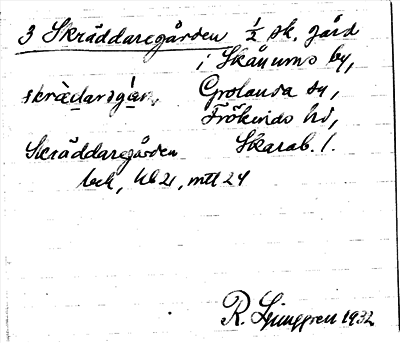 3 Skräddaregården ½ sk. gård
i Skånums by,
skrædarɜgɩan, Grolanda sn,
Frökinds hd,
Skräddaregården Skarab. l.
bek, Ub 21, mtl 24
R. Ljunggren 1932